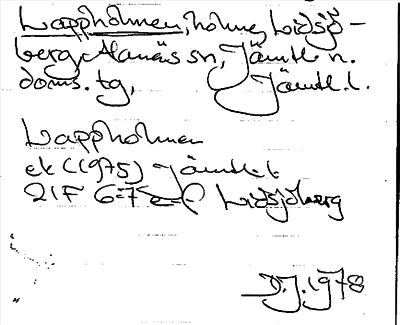 Lappholmen, holme, Lidsjö-
berg, Alanäs sn, Jämtl. n.
doms. tg, Jämtl. l.
Lappholmen
ek (1975) Jämtl. l
21F 6-7 e-f Lidsjöberg
D.J. 1978